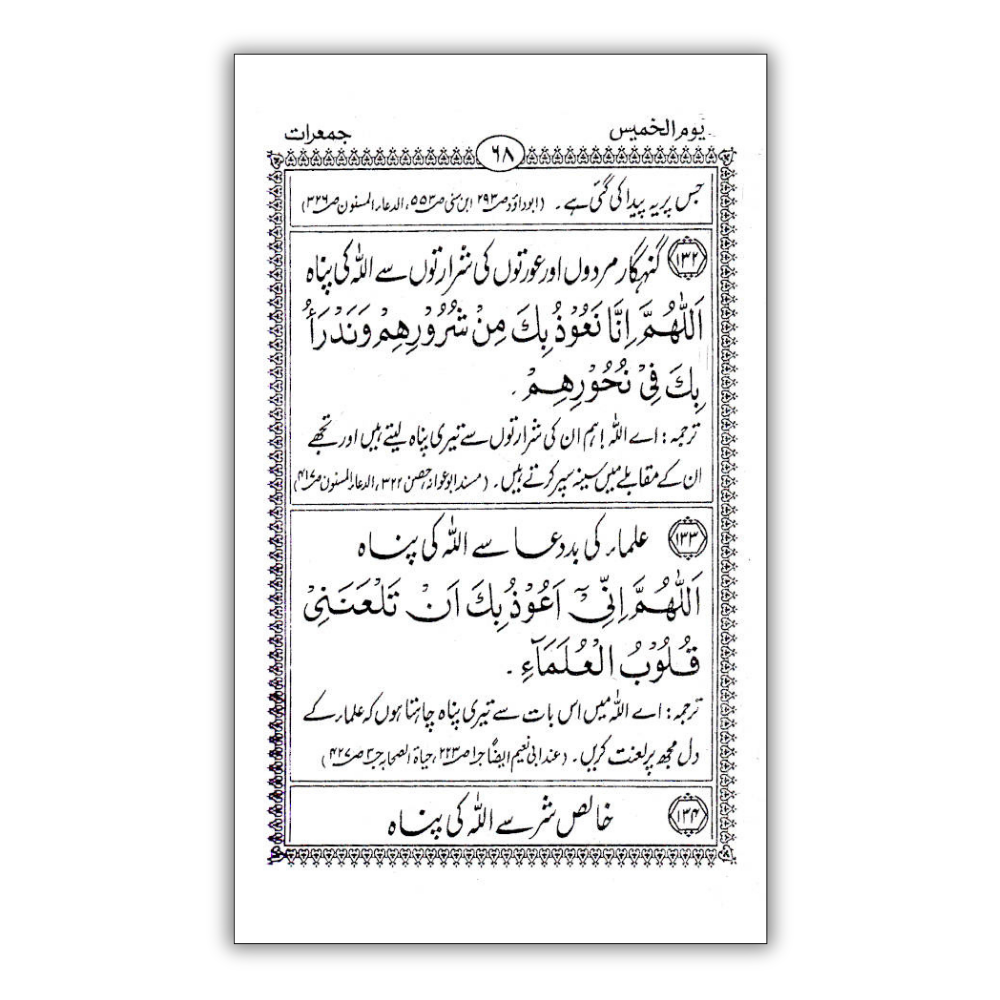 يوم الخميس
جمعرات
۶۸
جس پر یہ پیدا کی گئی ہے۔ (ابوداؤد صـ ۲۹۳ ابن سنی صـ ۵۵۳، الدعاء المسنون صـ ۳۲۶)
۱۳۲ گنہگار مردوں اور عورتوں کی شرارتوں سے اللہ کی پناہ
اَللّٰهُمَّ اِنَّا نَعُوْذُ بِكَ مِنْ شُرُوْرِهِمْ وَنَدْرَأُ
بِكَ فِىْ نُحُوْرِهِمْ۔
ترجمہ: اے اللہ! ہم ان کی شرارتوں سے تیری پناہ لیتے ہیں اور تجھے
ان کے مقابلے میں سینہ سپر کرتے ہیں۔ (مسند ابوعوانہ، حصن ۳۲۲، الدعاء المسنون صـ ۴۱۷)
۱۳۳ علماء کی بددعا سے اللہ کی پناہ
اَللّٰهُمَّ اِنِّىْٓ اَعُوْذُ بِكَ اَنْ تَلْعَنَنِىْ
قُلُوْبُ الْعُلَمَآءِ۔
ترجمہ: اے اللہ میں اس بات سے تیری پناہ چاہتا ہوں کہ علماء کے
دل مجھ پر لعنت کریں۔ (عند ابی نعیم ایضًا جـ۱ صـ ۲۲۳، حیاۃ الصحابہ جـ۳ صـ ۴۲۷)
۱۳۴ خالص شر سے اللہ کی پناہ